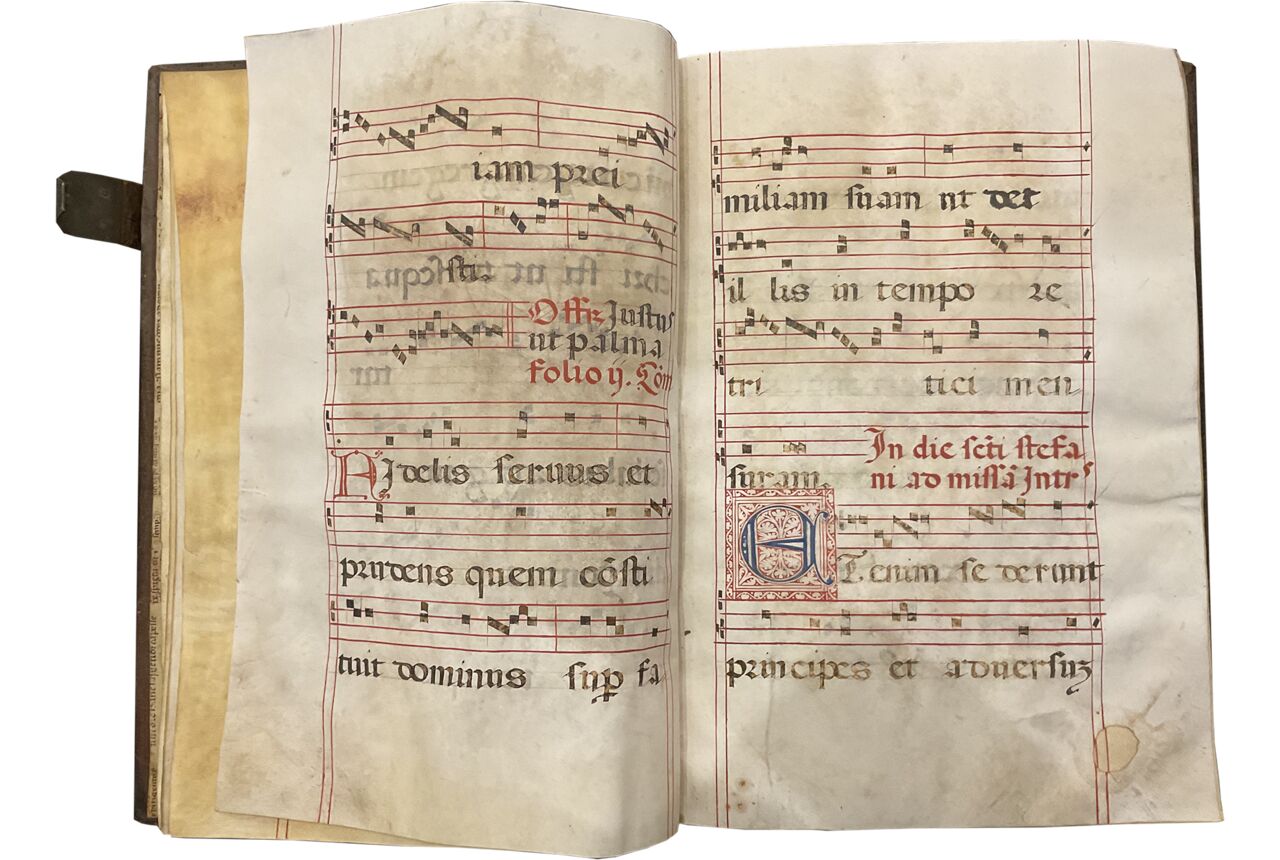 iam prei
sti.
Offr̄ Justus
ut palma
folio ij. Cōm
Fidelis seruus et
prudens quem cōsti
tuit dominus sup̱ fa
miliam suam ut det
il lis in tempo re
tri tici men
suram.
In die scti stefa
ni ad missā Intr
ETenim se derunt
principes et aduersuz